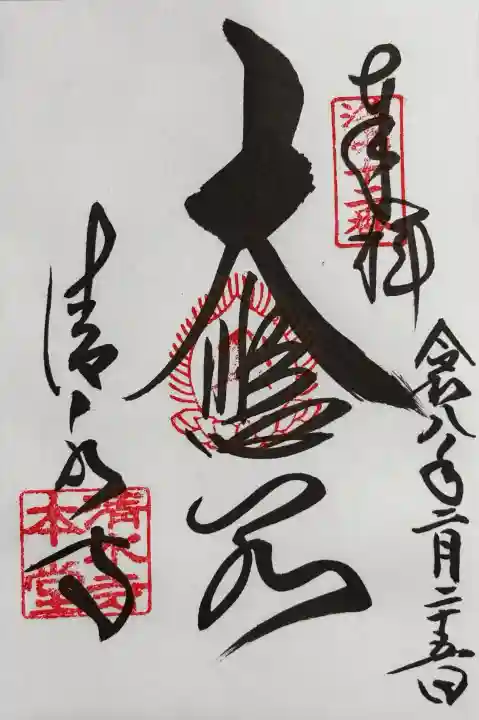 奉拝
令和八年二月二十五日
大悲閣
清水寺
清水寺
本堂